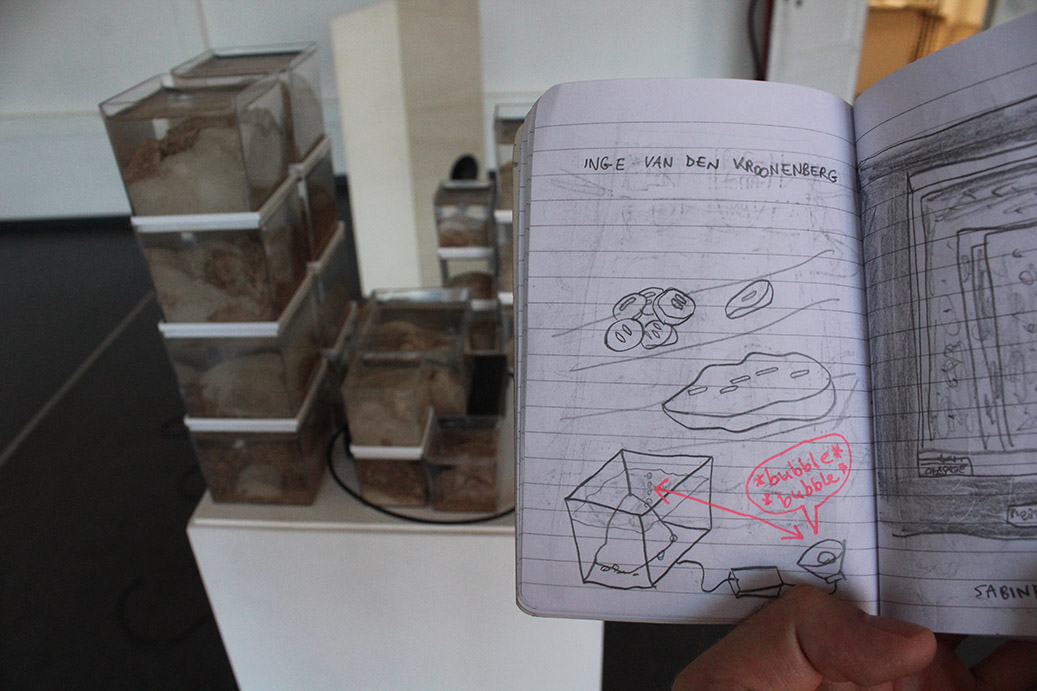 INGE VAN DEN KROONENBERG
*bubble*
*bubble*
SABIN